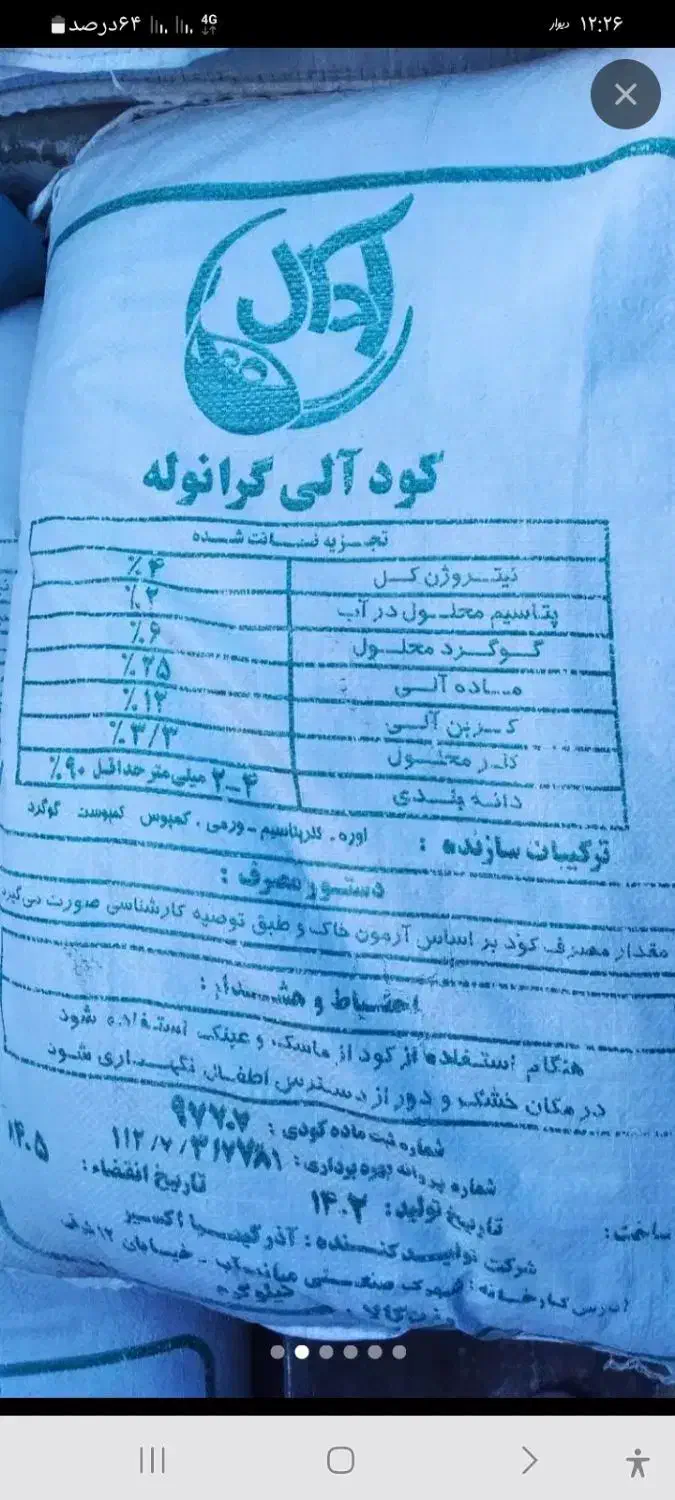 ۱۲:۲۶ دیوار 4G ۶۴درصد
کود آلی گرانوله
تجزیه ضمانت شده
نیتروژن کل ۴%
پتاسیم محلول در آب ۲%
گوگرد محلول ۶%
ماده آلی ۲۵%
کربن آلی ۱۲%
کلر محلول ۳/۳%
دانه بندی ۲-۴ میلی متر حداقل ۹۰%
ترکیبات سازنده : اوره . کلرپتاسیم - ورمی . کمپوس کمپوست گوگرد
دستور مصرف :
مقدار مصرف کود بر اساس آزمون خاک و طبق توصیه کارشناسی صورت می گیرد
احتیاط و هشدار :
هنگام استفاده از کود از ماسک و عینک استفاده شود
در مکان خشک و دور از دسترس اطفال نگهداری شود
شماره ثبت ماده کودی : ۹۷۷۰۷
شماره پروانه بهره برداری : ۱۱۲/۷/۳۱۷۷۸۱
تاریخ تولید : ۱۴۰۲ تاریخ انقضاء : ۱۴۰۵
شرکت تولید کننده : آذر گیمیا اکسیر
آدرس کارخانه : شهرک صنعتی میاندوآب - خیابان ۱۲ شرقی
ساخت :
کیلوگرم